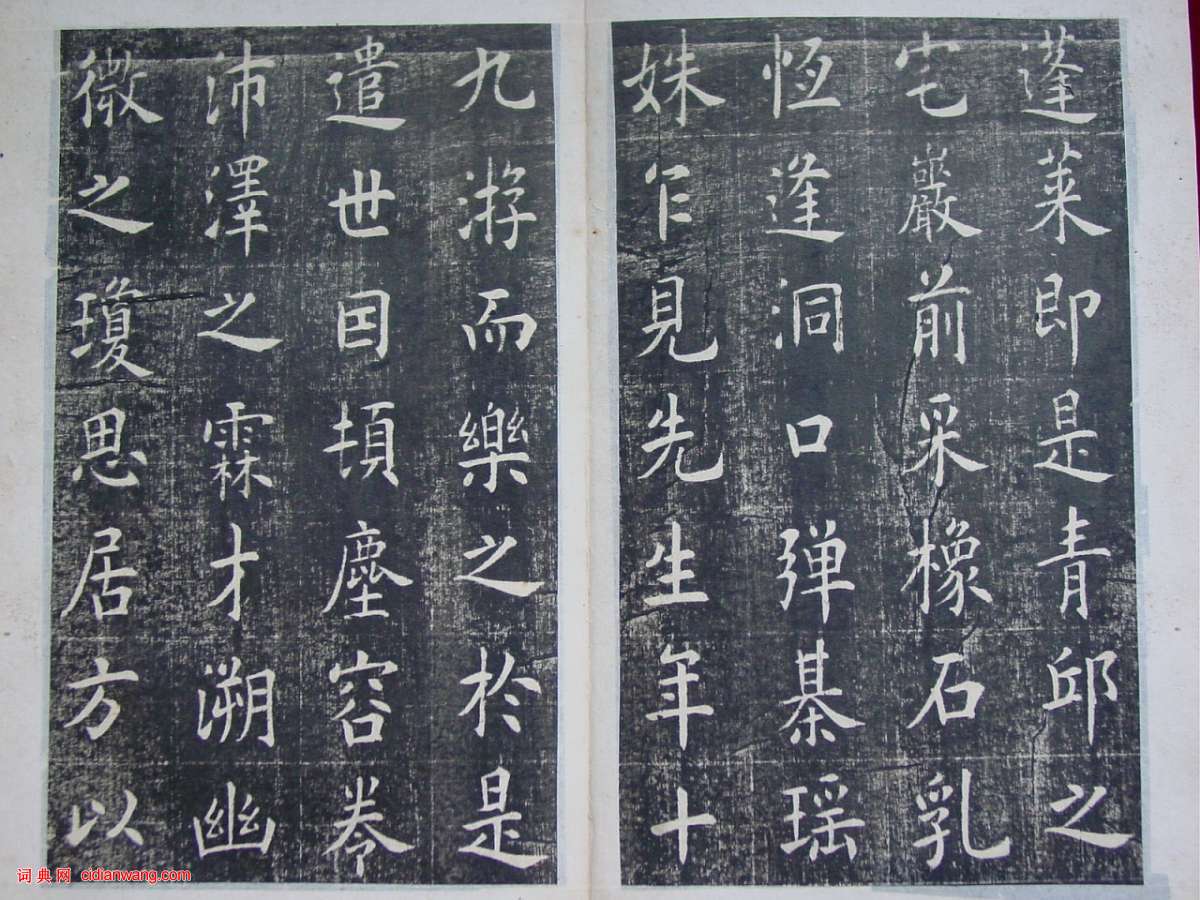 蓬萊即是青邱之
宅巖前采橡石乳
恆逢洞口弹棊瑶
姝乍見先生年十
九游而樂之於是
遣世因損塵容眷
沛澤之霖才溯幽
微之瓊思居方以
词典网 cidianwang.com